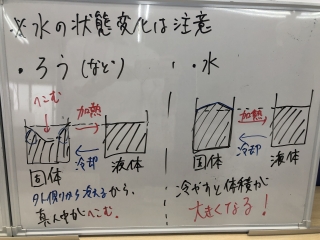 ※水の状態変化は注意
・ろう(など)
・水
へこむ
加熱
冷却
固体
液体
加熱
冷却
固体
液体
外側から冷えるから、
真ん中がへこむ.
冷やすと体積が
大きくなる!